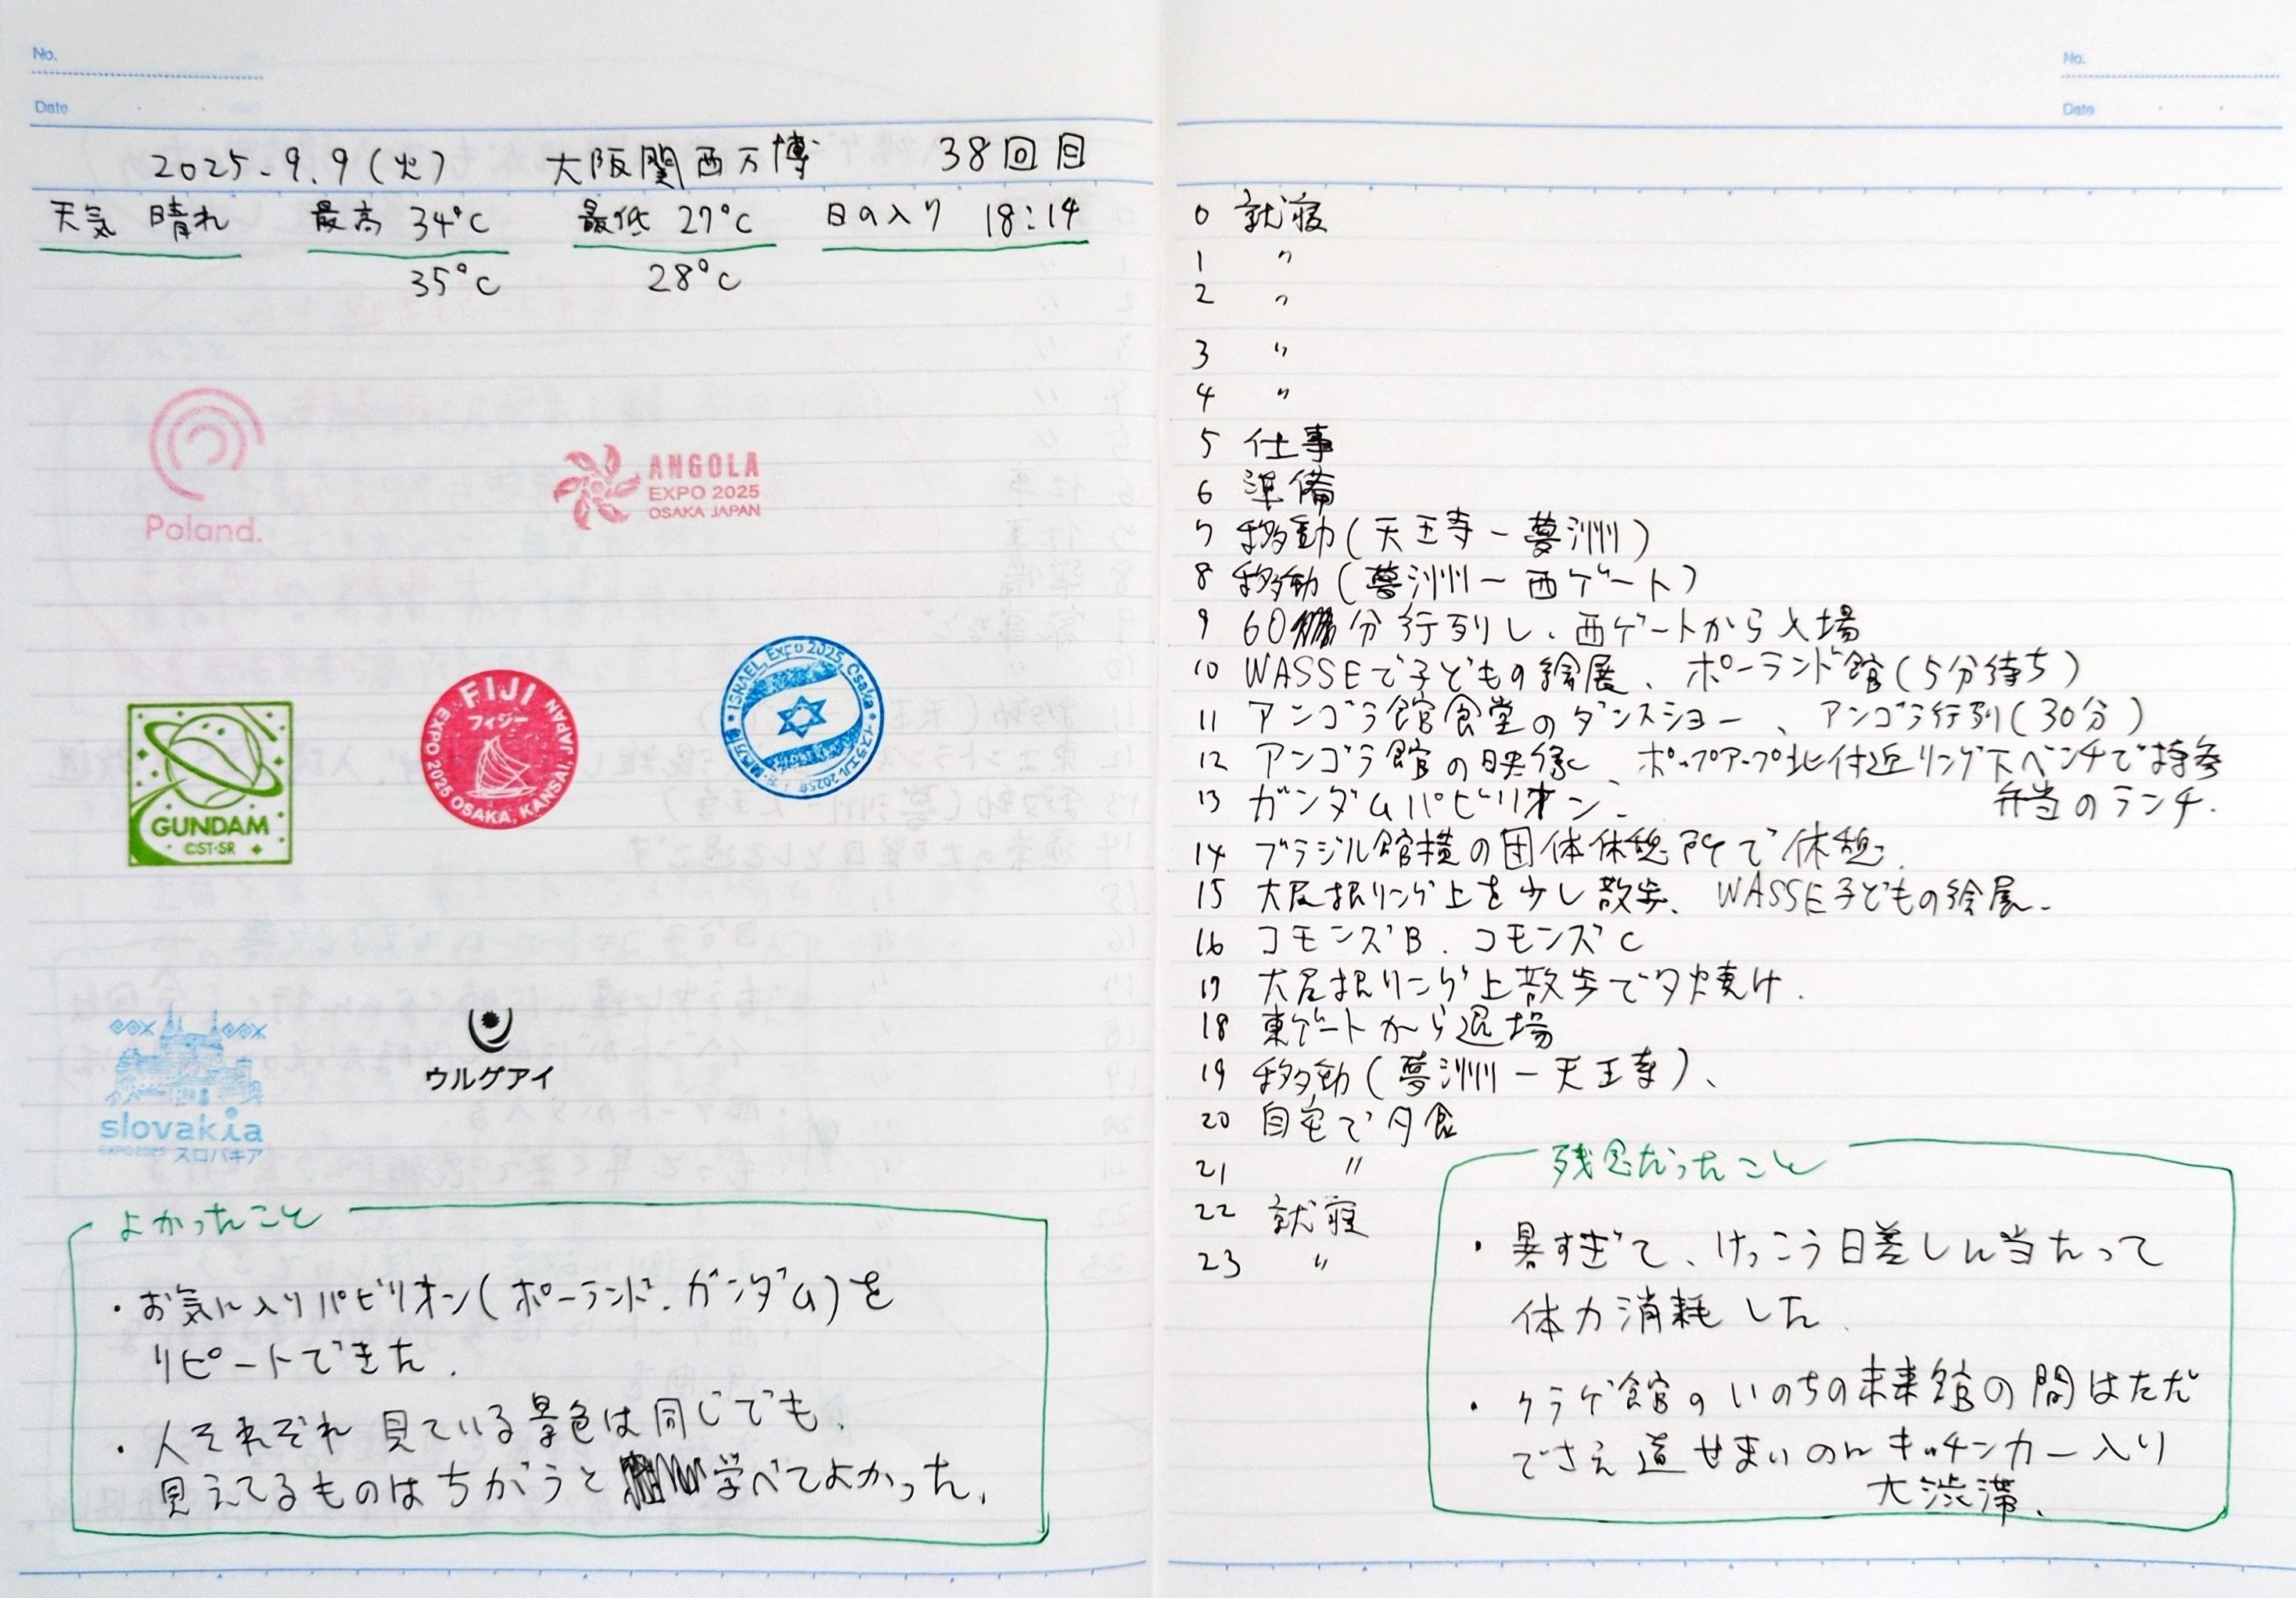 No.
Date
2025.9.9(火) 大阪関西万博 38回目
天気 晴れ 最高 34°C 最低 27°C 日の入り 18:14
35°C 28°C
Poland.
ANGOLA
EXPO 2025
OSAKA JAPAN
GUNDAM
©ST・SR
FIJI
フィジー
EXPO 2025 OSAKA, KANSAI, JAPAN
ISRAEL, EXPO 2025, Osaka
slovakia
EXPO2025 スロバキア
ウルグアイ
よかったこと
・お気に入りパビリオン(ポーランド、ガンダム)を
リピートできた.
・人それぞれ見ている景色は同じでも、
見えてるものはちがうと 学べてよかった.
No.
Date
0 就寝
1 〃
2 〃
3 〃
4 〃
5 仕事
6 準備
7 移動(天王寺-夢洲)
8 移動(夢洲-西ゲート)
9 60 分行列し、西ゲートから入場
10 WASSEで子どもの絵展、ポーランド館(5分待ち)
11 アンゴラ館食堂のダンスショー、アンゴラ行列(30分)
12 アンゴラ館の映像、ポップアップ北付近リング下ベンチで持参
弁当のランチ.
13 ガンダムパビリオン.
14 ブラジル館横の団体休憩所で休憩.
15 大屋根リング上を少し散歩、WASSE子どもの絵展.
16 コモンズB、コモンズC
17 大屋根リング上散歩で夕焼け.
18 東ゲートから退場
19 移動(夢洲-天王寺)、
20 自宅で夕食
21 〃
22 就寝
23 〃
残念だったこと
・暑すぎて、けっこう日差しに当たって
体力消耗した.
・クラゲ館のいのちの未来館の間はただ
でさえ道せまいのにキッチンカー入り
大渋滞.